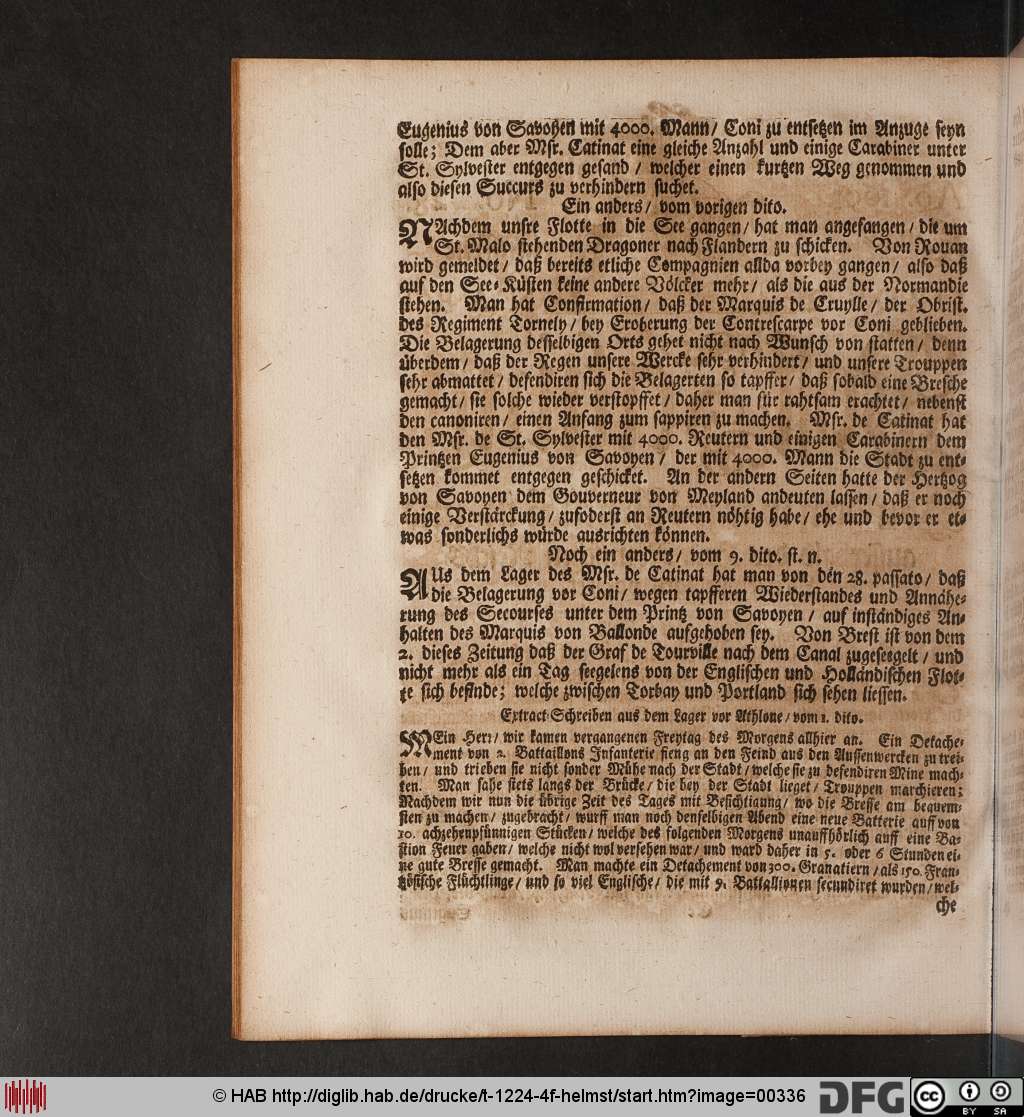 Eugenius von Savoyen mit 4000. Mann/ Coni zu entsetzen im Anzuge seyn
solle; Dem aber Msr. Catinat eine gleiche Anzahl und einige Carabiner unter
St. Sylvester entgegen gesand / welcher einen kurtzen Weg genommen und
also diesen Succurs zu verhindern suchet.
Ein anders/ vom vorigen dito.
NAchdem unsre Flotte in die See gangen/ hat man angefangen/ die um
St. Malo stehenden Dragoner nach Flandern zu schicken. Von Rouan
wird gemeldet/ daß bereits etliche Compagnien allda vorbey gangen/ also daß
auf den See-Küsten keine andere Völcker mehr/ als die aus der Normandie
stehen. Man hat Confirmation/ daß der Marquis de Cruylle/ der Obrist.
des Regiment Tornely/ bey Eroberung der Contrescarpe vor Coni geblieben.
Die Belagerung desselbigen Orts gehet nicht nach Wunsch von statten/ denn
überdem/ daß der Regen unsere Wercke sehr verhindert/ und unsere Trouppen
sehr abmattet/ defendiren sich die Belagerten so tapffer/ daß sobald eine Bresche
gemacht/ sie solche wieder verstopffet/ daher man für rahtsam erachtet/ nebenst
den canoniren/ einen Anfang zum sappiren zu machen. Msr. de Catinat hat
den Msr. de St. Sylvester mit 4000. Reutern und einigen Carabinern dem
Printzen Eugenius von Savoyen/ der mit 4000. Mann die Stadt zu ent-
setzen kommet entgegen geschicket. An der andern Seiten hatte der Hertzog
von Savoyen dem Gouverneur von Meyland andeuten lassen/ daß er noch
einige Verstärckung/ zufoderst an Reutern nöhtig habe/ ehe und bevor er et-
was sonderlichs würde ausrichten können.
Noch ein anders/ vom 9. dito. st. n.
AUs dem Lager des Msr. de Catinat hat man von den 28. passato/ daß
die Belagerung vor Coni/ wegen tapfferen Wiederstandes und Annähe-
rung des Secourses unter dem Printz von Savoyen/ auf inständiges An-
halten des Marquis von Ballonde aufgehoben sey. Von Brest ist von dem
2. dieses Zeitung daß der Graf de Tourville nach dem Canal zugeseegelt/ und
nicht mehr als ein Tag seegelens von der Englischen und Holländischen Flot-
te sich befinde; welche zwischen Torbay und Portland sich sehen liessen.
Extract-Schreiben aus dem Lager vor Athlone/ vom 1. dito.
MEin Herr/ wir kamen vergangenen Freytag des Morgens allhier an. Ein Detache-
ment von 2. Battaillons Infanterie fieng an den Feind aus den Aussenwercken zu trei-
ben/ und trieben sie nicht sonder Mühe nach der Stadt/ welche sie zu defendiren Mine mach-
ten. Man sahe stets langs der Brücke/ die bey der Stadt lieget/ Trouppen marchieren;
Nachdem wir nun die übrige Zeit des Tages mit Besichtigung/ wo die Bresse am bequem-
sten zu machen/ zugebracht/ wurff man noch denselbigen Abend eine neue Batterie auff von
10. achzehenpfünnigen Stücken/ welche des folgenden Morgens unauffhörlich auff eine Ba-
stion Feuer gaben/ welche nicht wol versehen war/ und ward daher in 5. oder 6 Stunden ei-
ne gute Bresse gemacht. Man machte ein Detachement von 300. Granatiern/ als 150. Fran-
tzösische Flüchtlinge/ und so viel Englische/ die mit 9. Battallionen secundiret wurden/ wel-
che
© HAB http://diglib.hab.de/drucke/t-1224-4f-helmst/start.htm?image=00336
DFG
cc BY SA